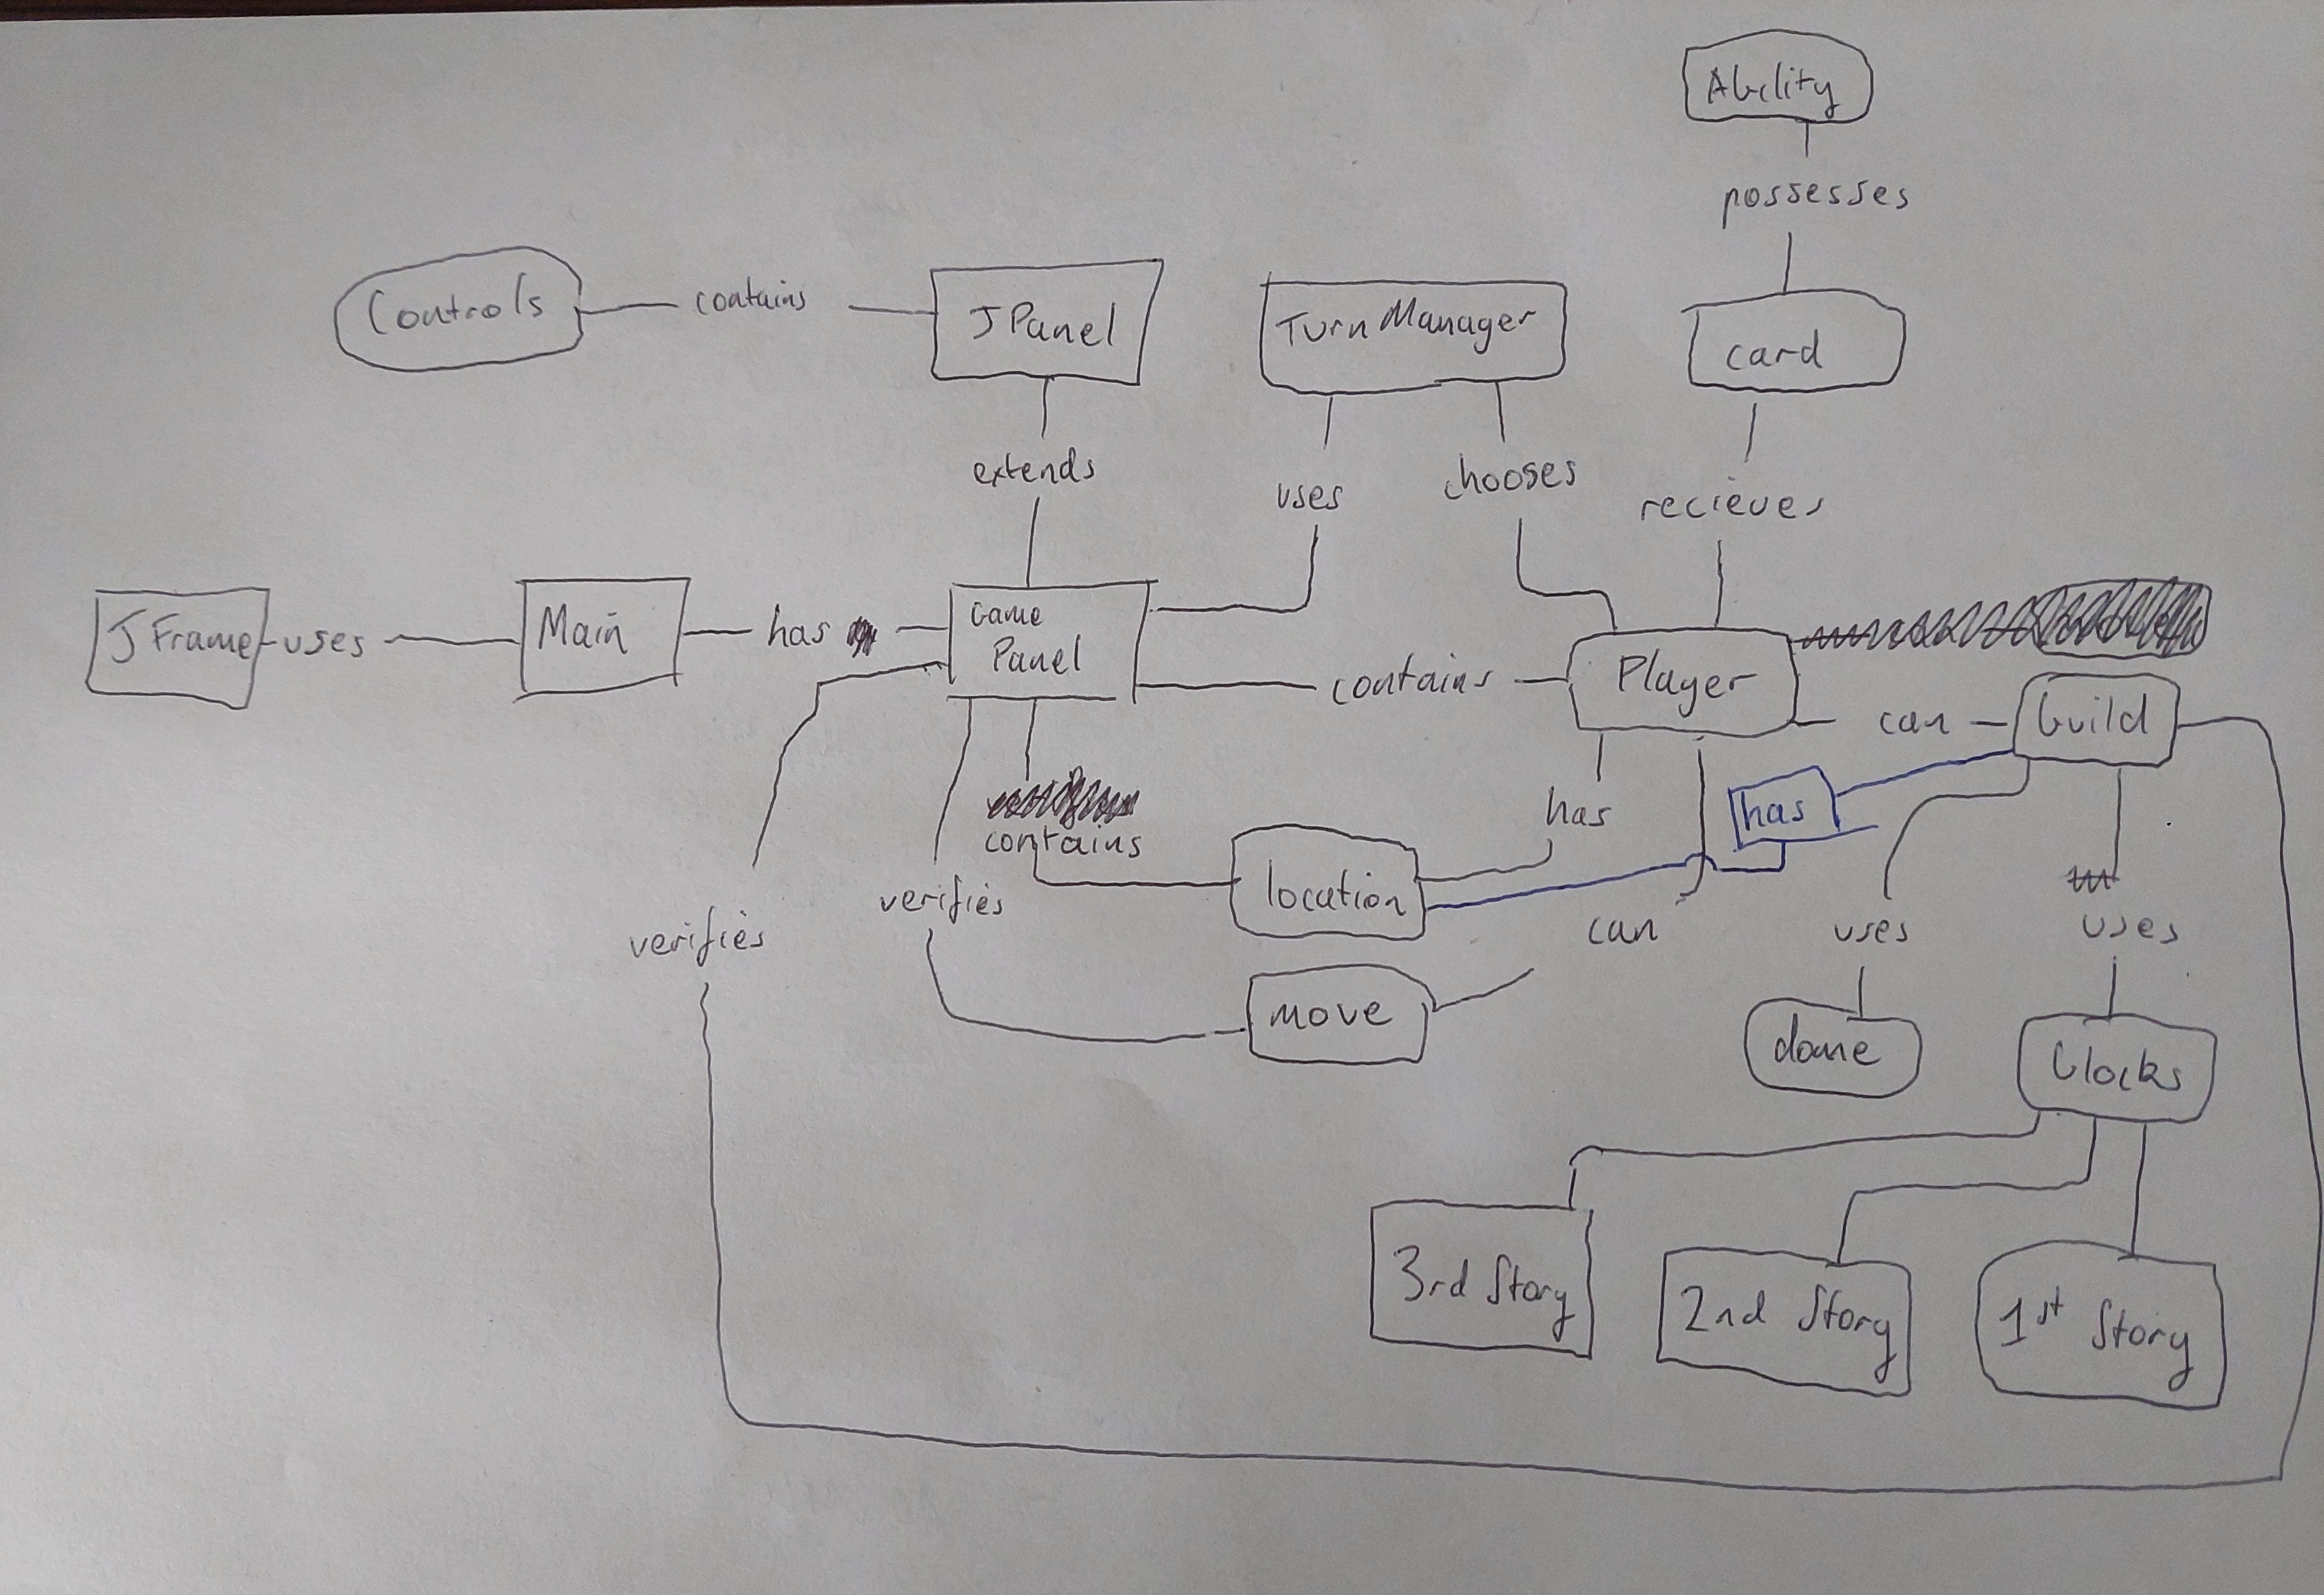 Ability
possesses
Controls
contains
JPanel
TurnManager
card
extends
uses
chooses
recieves
JFrame
uses
Main
has
Game
Panel
contains
Player
can
Build
has
has
contains
location
verifies
verifies
can
uses
uses
move
dome
Blocks
3rd Story
2nd Story
1st Story